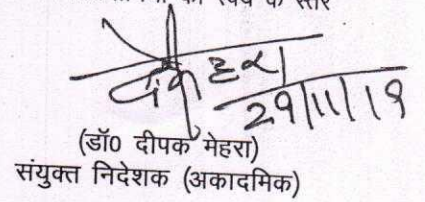 के स्तर
29/11/19
(डॉ0 दीपक मेहरा)
संयुक्त निदेशक (अकादमिक)